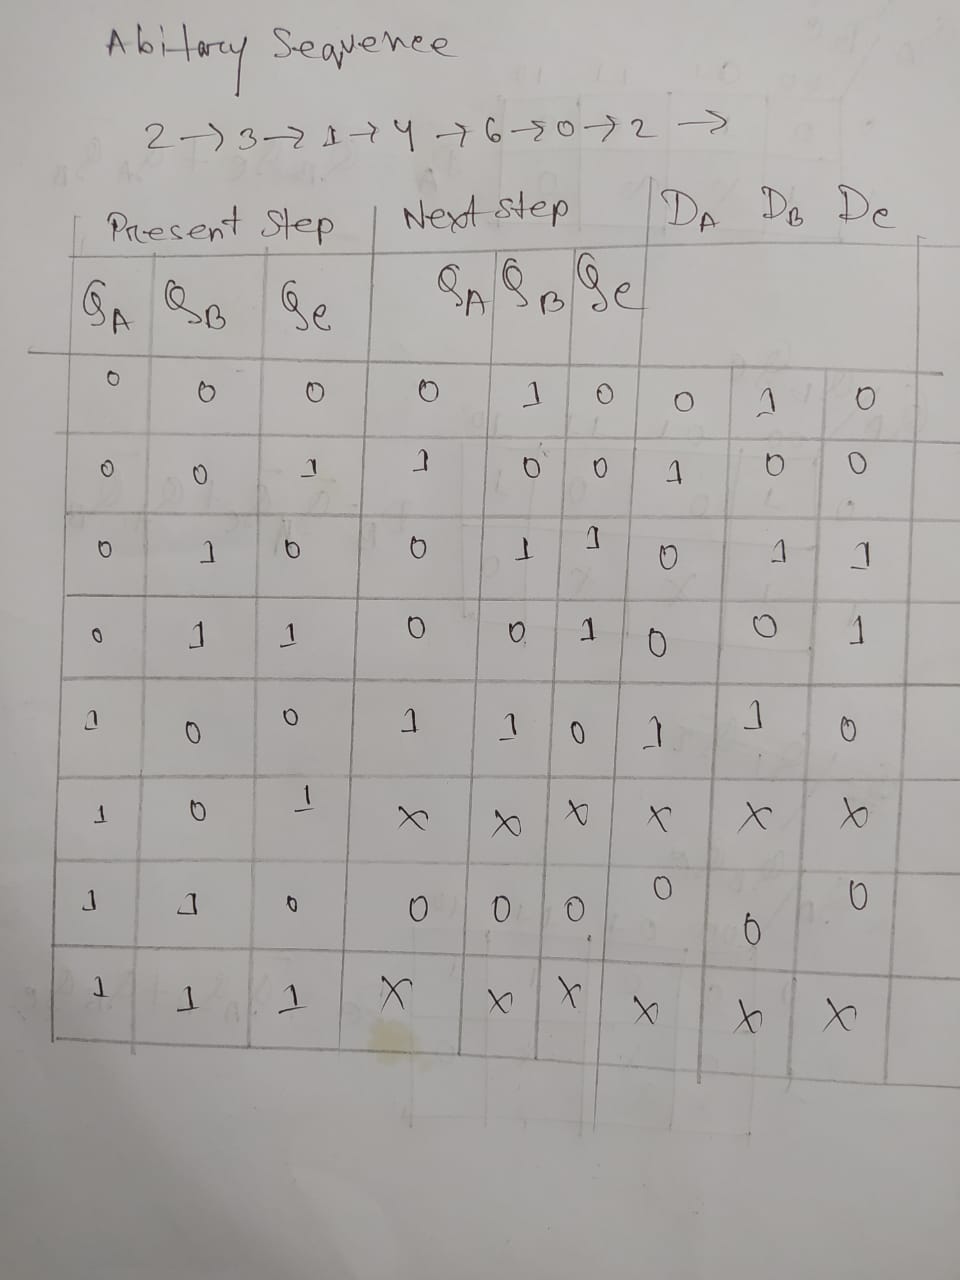 Abitary Sequence
2 → 3 → 1 → 4 → 6 → 0 → 2 →
Present Step Next step DA DB Dc
QA QB Qc QA QB Qc
0 0 0 0 1 0 0 1 0
0 0 1 1 0 0 1 0 0
0 1 0 0 1 1 0 1 1
0 1 1 0 0 1 0 0 1
1 0 0 1 1 0 1 1 0
1 0 1 X X X X X X
1 1 0 0 0 0 0 0 0
1 1 1 X X X X X X